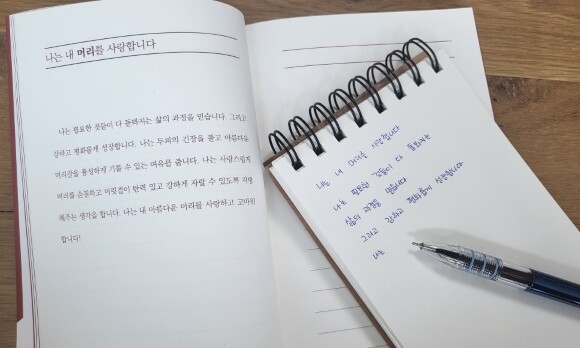 나는 내 머리를 사랑합니다
나는 필요한 것들이 다 돌봐지는 삶의 과정을 믿습니다. 그리고
강하고 평화롭게 성장합니다. 나는 두피의 긴장을 풀고 아름다운
머리칼을 풍성하게 기를 수 있는 여유를 줍니다. 나는 사랑스럽게
머리를 손질하고 머릿결이 탄력 있고 강하게 자랄 수 있도록 지원
해주는 생각을 합니다. 나는 내 아름다운 머리를 사랑하고 고마워
합니다!
나는 내 머리를 사랑합니다
나는 필요한 것들이 다 돌봐지는
삶의 과정을 믿습니다
그리고 강하고 평화롭게 성장합니다
나는